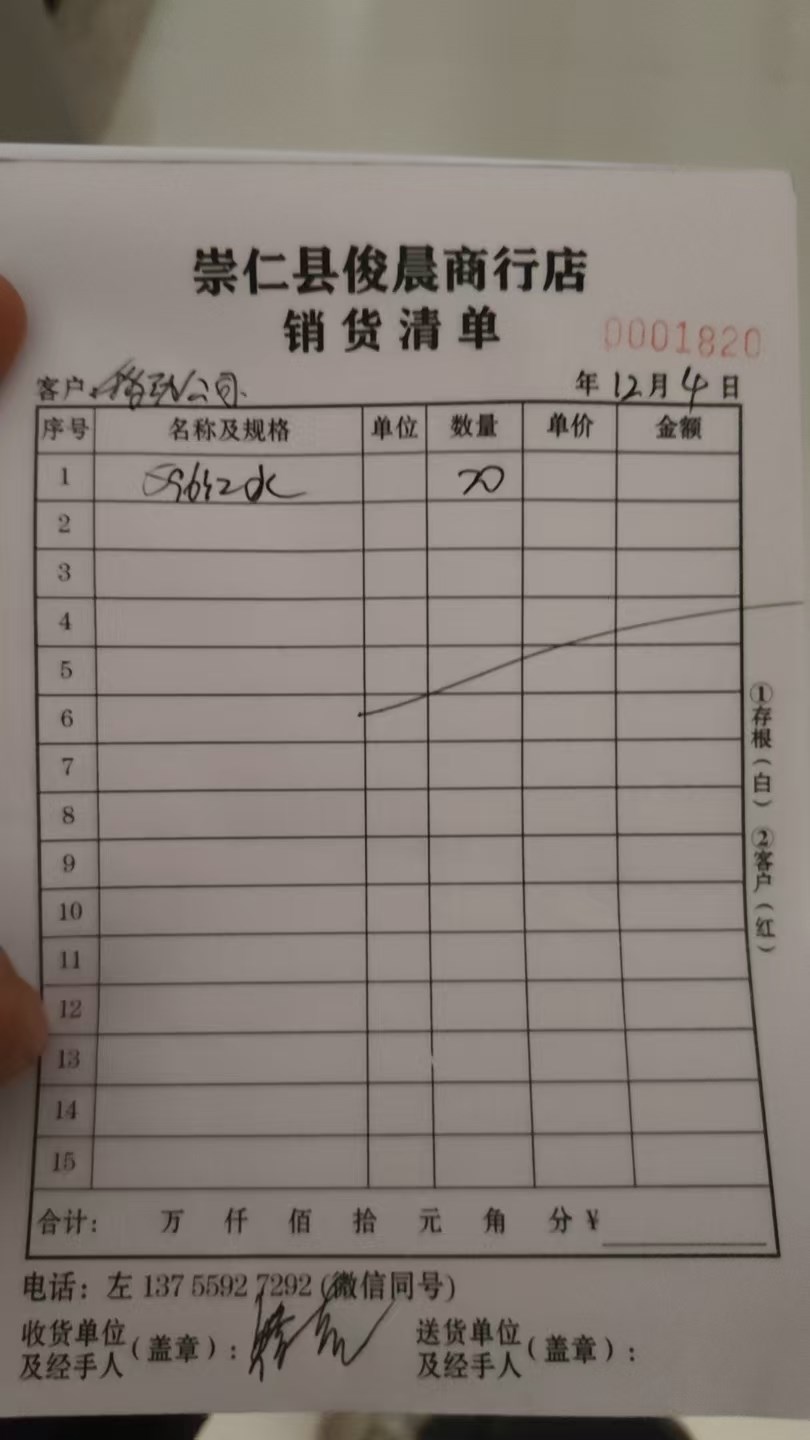 崇仁县俊晨商行店
销货清单
0001820
客户: 公司
年12月4日
序号 名称及规格 单位 数量 单价 金额
1
2
3
4
5
6
7
8
9
10
11
12
13
14
15
合计: 万 仟 佰 拾 元 角 分 ¥
①存根(白) ②客户(红)
电话: 左 137 5592 7292 (微信同号)
收货单位及经手人(盖章):
送货单位及经手人(盖章):